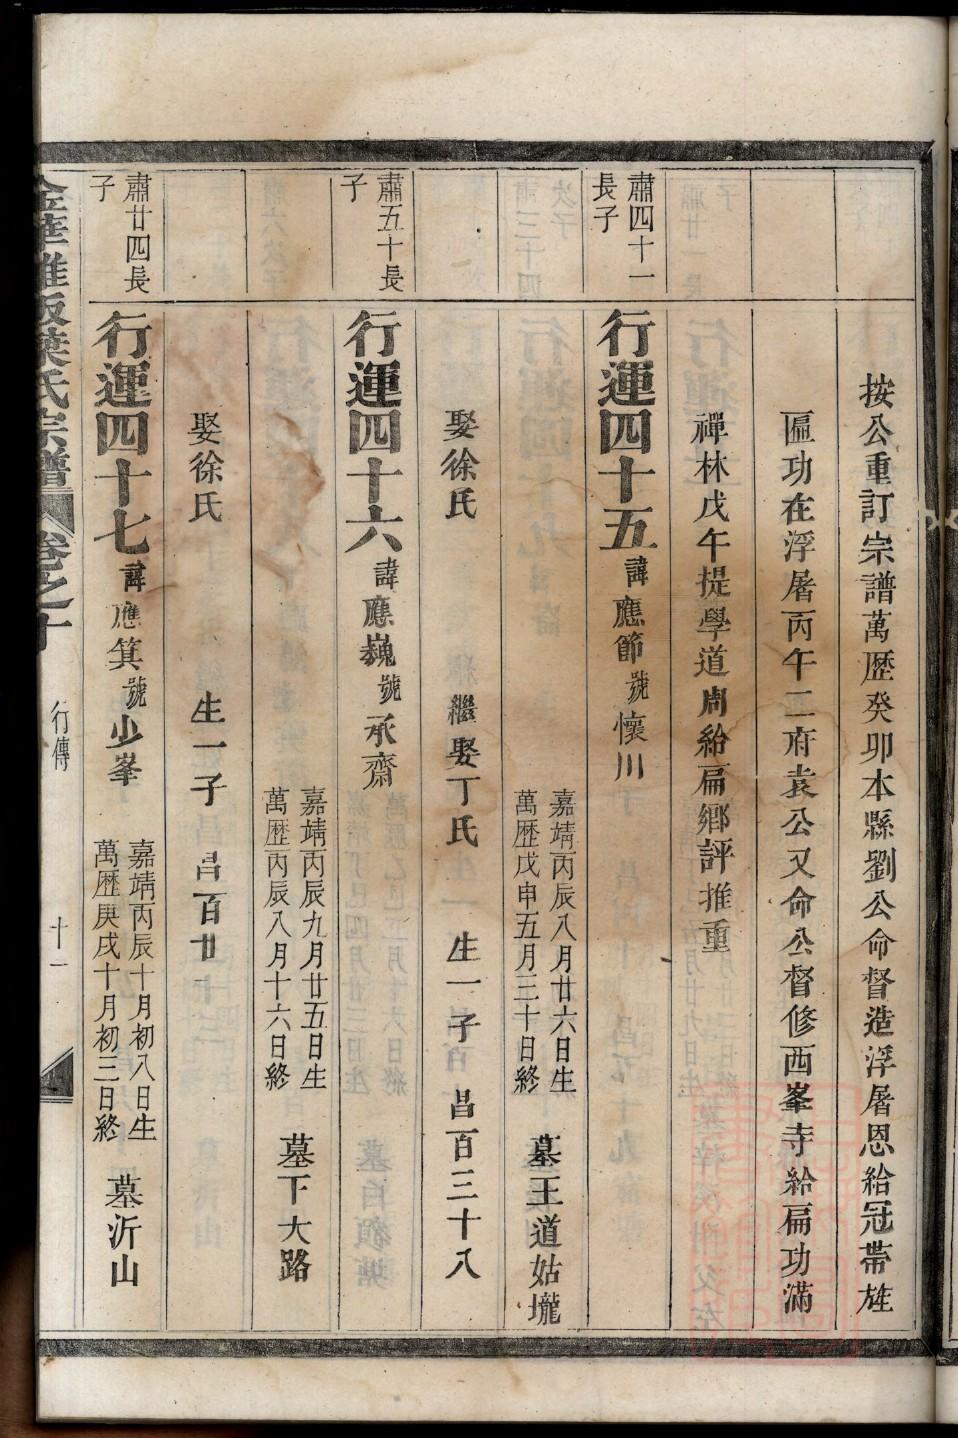 按公重訂宗譜萬歷癸卯本縣劉公命督造浮屠恩給冠帶旌
匾功在浮屠丙午二府袁公又命公督修西峯寺給扁功滿
禪林戊午提學道周給扁鄉評推重
肅四十一
長子
行運四十五 諱應節號懷川
嘉靖丙辰八月廿六日生
萬歷戊申五月三十日終
墓王道姑壠
娶徐氏 繼娶丁氏 生一子 昌百三十八
肅五十長
子
行運四十六 諱應巍號承齋
嘉靖丙辰九月廿五日生
萬歷丙辰八月十六日終
墓下大路
娶徐氏 生一子 昌百廿
肅廿四長
子
行運四十七 諱應箕號少峯
嘉靖丙辰十月初八日生
萬歷庚戌十月初三日終
墓沂山
葉氏宗譜 卷之十 行傳 十一